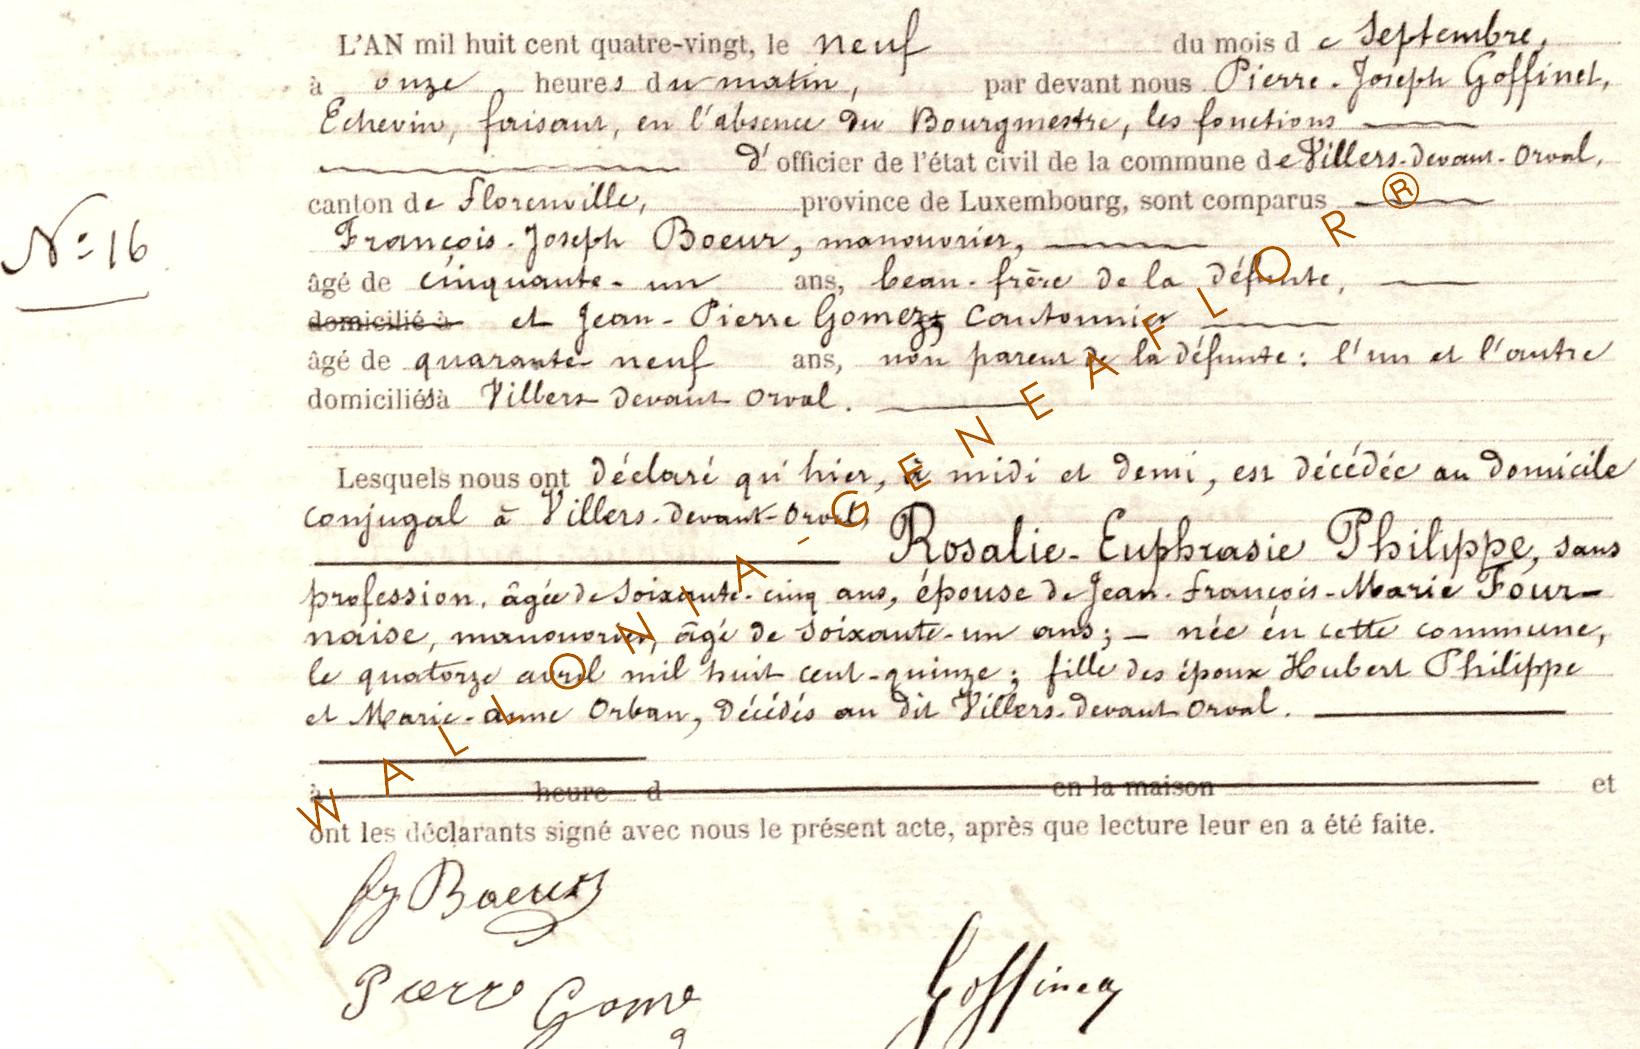 L'AN mil huit cent quatre-vingt, le neuf du mois de Septembre,
à onze heures du matin, par devant nous Pierre-Joseph Goffinet,
Echevin, faisant, en l'absence du Bourgmestre, les fonctions
d'officier de l'état civil de la commune de Villers-devant-Orval,
canton de Florenville, province de Luxembourg, sont comparus
François-Joseph Boeur, manouvrier,
N° 16
âgé de cinquante-un ans, beau-frère de la défunte,
domicilié à et Jean-Pierre Gomez, Cantonnier
âgé de quarante neuf ans, non parent de la défunte : l'un et l'autre
domiciliés à Villers devant Orval.
Lesquels nous ont déclaré qu'hier, à midi et demi, est décédée au domicile
conjugal à Villers-devant-Orval,
Rosalie-Euphrasie Philippe, sans
profession, âgée de soixante-cinq ans, épouse de Jean-François-Marie Four-
naise, manouvrier, âgé de soixante-un ans ; - née en cette commune,
le quatorze avril mil huit cent-quinze ; fille des époux Hubert Philippe
et Marie-anne Orban, décédés au dit Villers-devant Orval.
à heure d en la maison et
ont les déclarants signé avec nous le présent acte, après que lecture leur en a été faite.
fj Boeur
Pierre Gome
Goffinet
WALLONIA-GENEAFLOR®